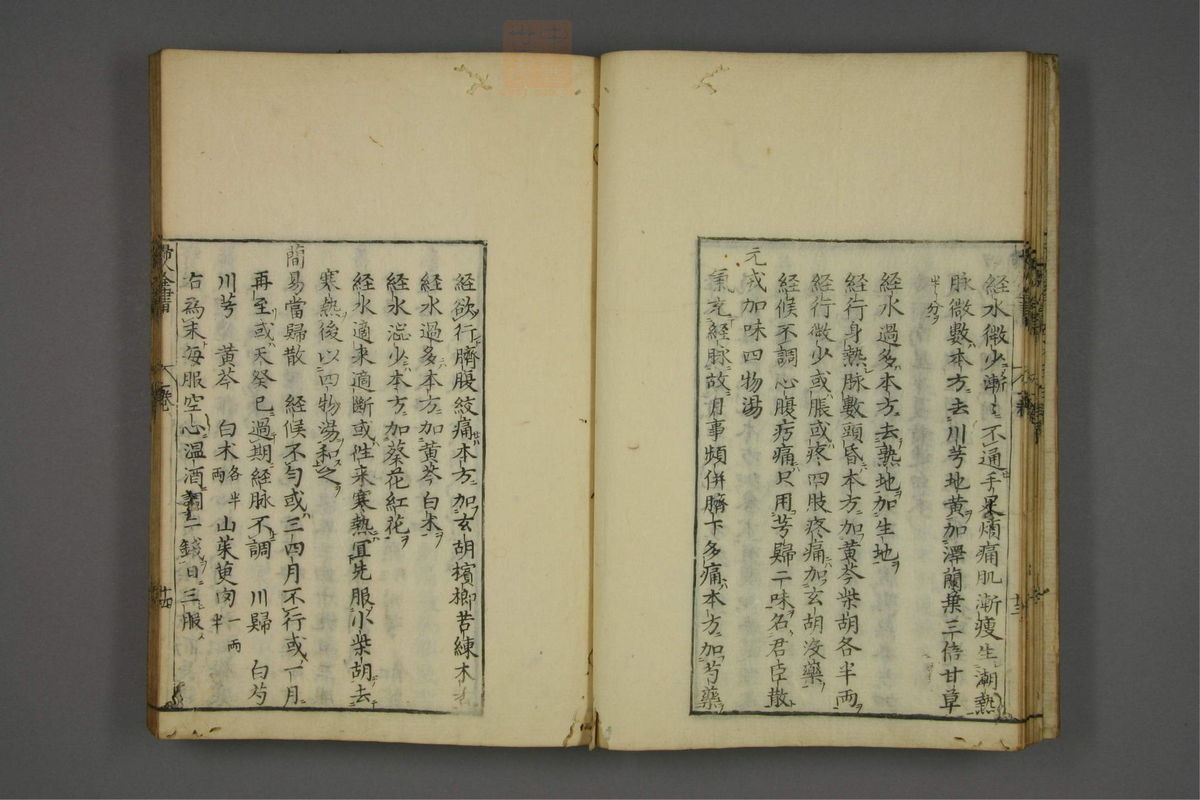 経水微少漸〻不通手果煩痛肌漸瘦生潮熱
脉微數本方去川芎地黄加澤蘭葉三倍甘草
半分
経水過多本方去熟地加生地
経行身熱脉數頭昏本方加黄芩柴胡各半両
経行微少或脹或疼四肢疼痛加玄胡没藥
経候不調心腹㽲痛只用芎歸二味名君臣散
氣充経脉故月事頻併臍下多痛本方加芍藥
元戎加味四物湯
経欲行臍腹絞痛本方加玄胡檳榔苦練木
経水過多本方加黄芩白朮
経水澁少本方加葵花紅花
経水適来適断或徃来寒熱冝先服小柴胡去
寒熱後以四物湯和之
簡易當歸散 経候不勻或三四月不行或一月
再至或天癸已過期経脉不調 川歸 白芍
川芎 黄芩 白朮各半両 山茱萸肉一両半
右為末每服空心温酒調二錢日三服
婦人全書 六巻 十四